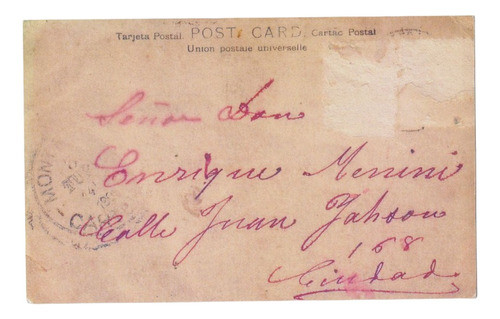 Tarjeta Postal. POST CARD. Cartao Postal
Union postale universelle
Señor Don
Enrique Menini
Calle Juan Jahson
168
Ciudad
MON